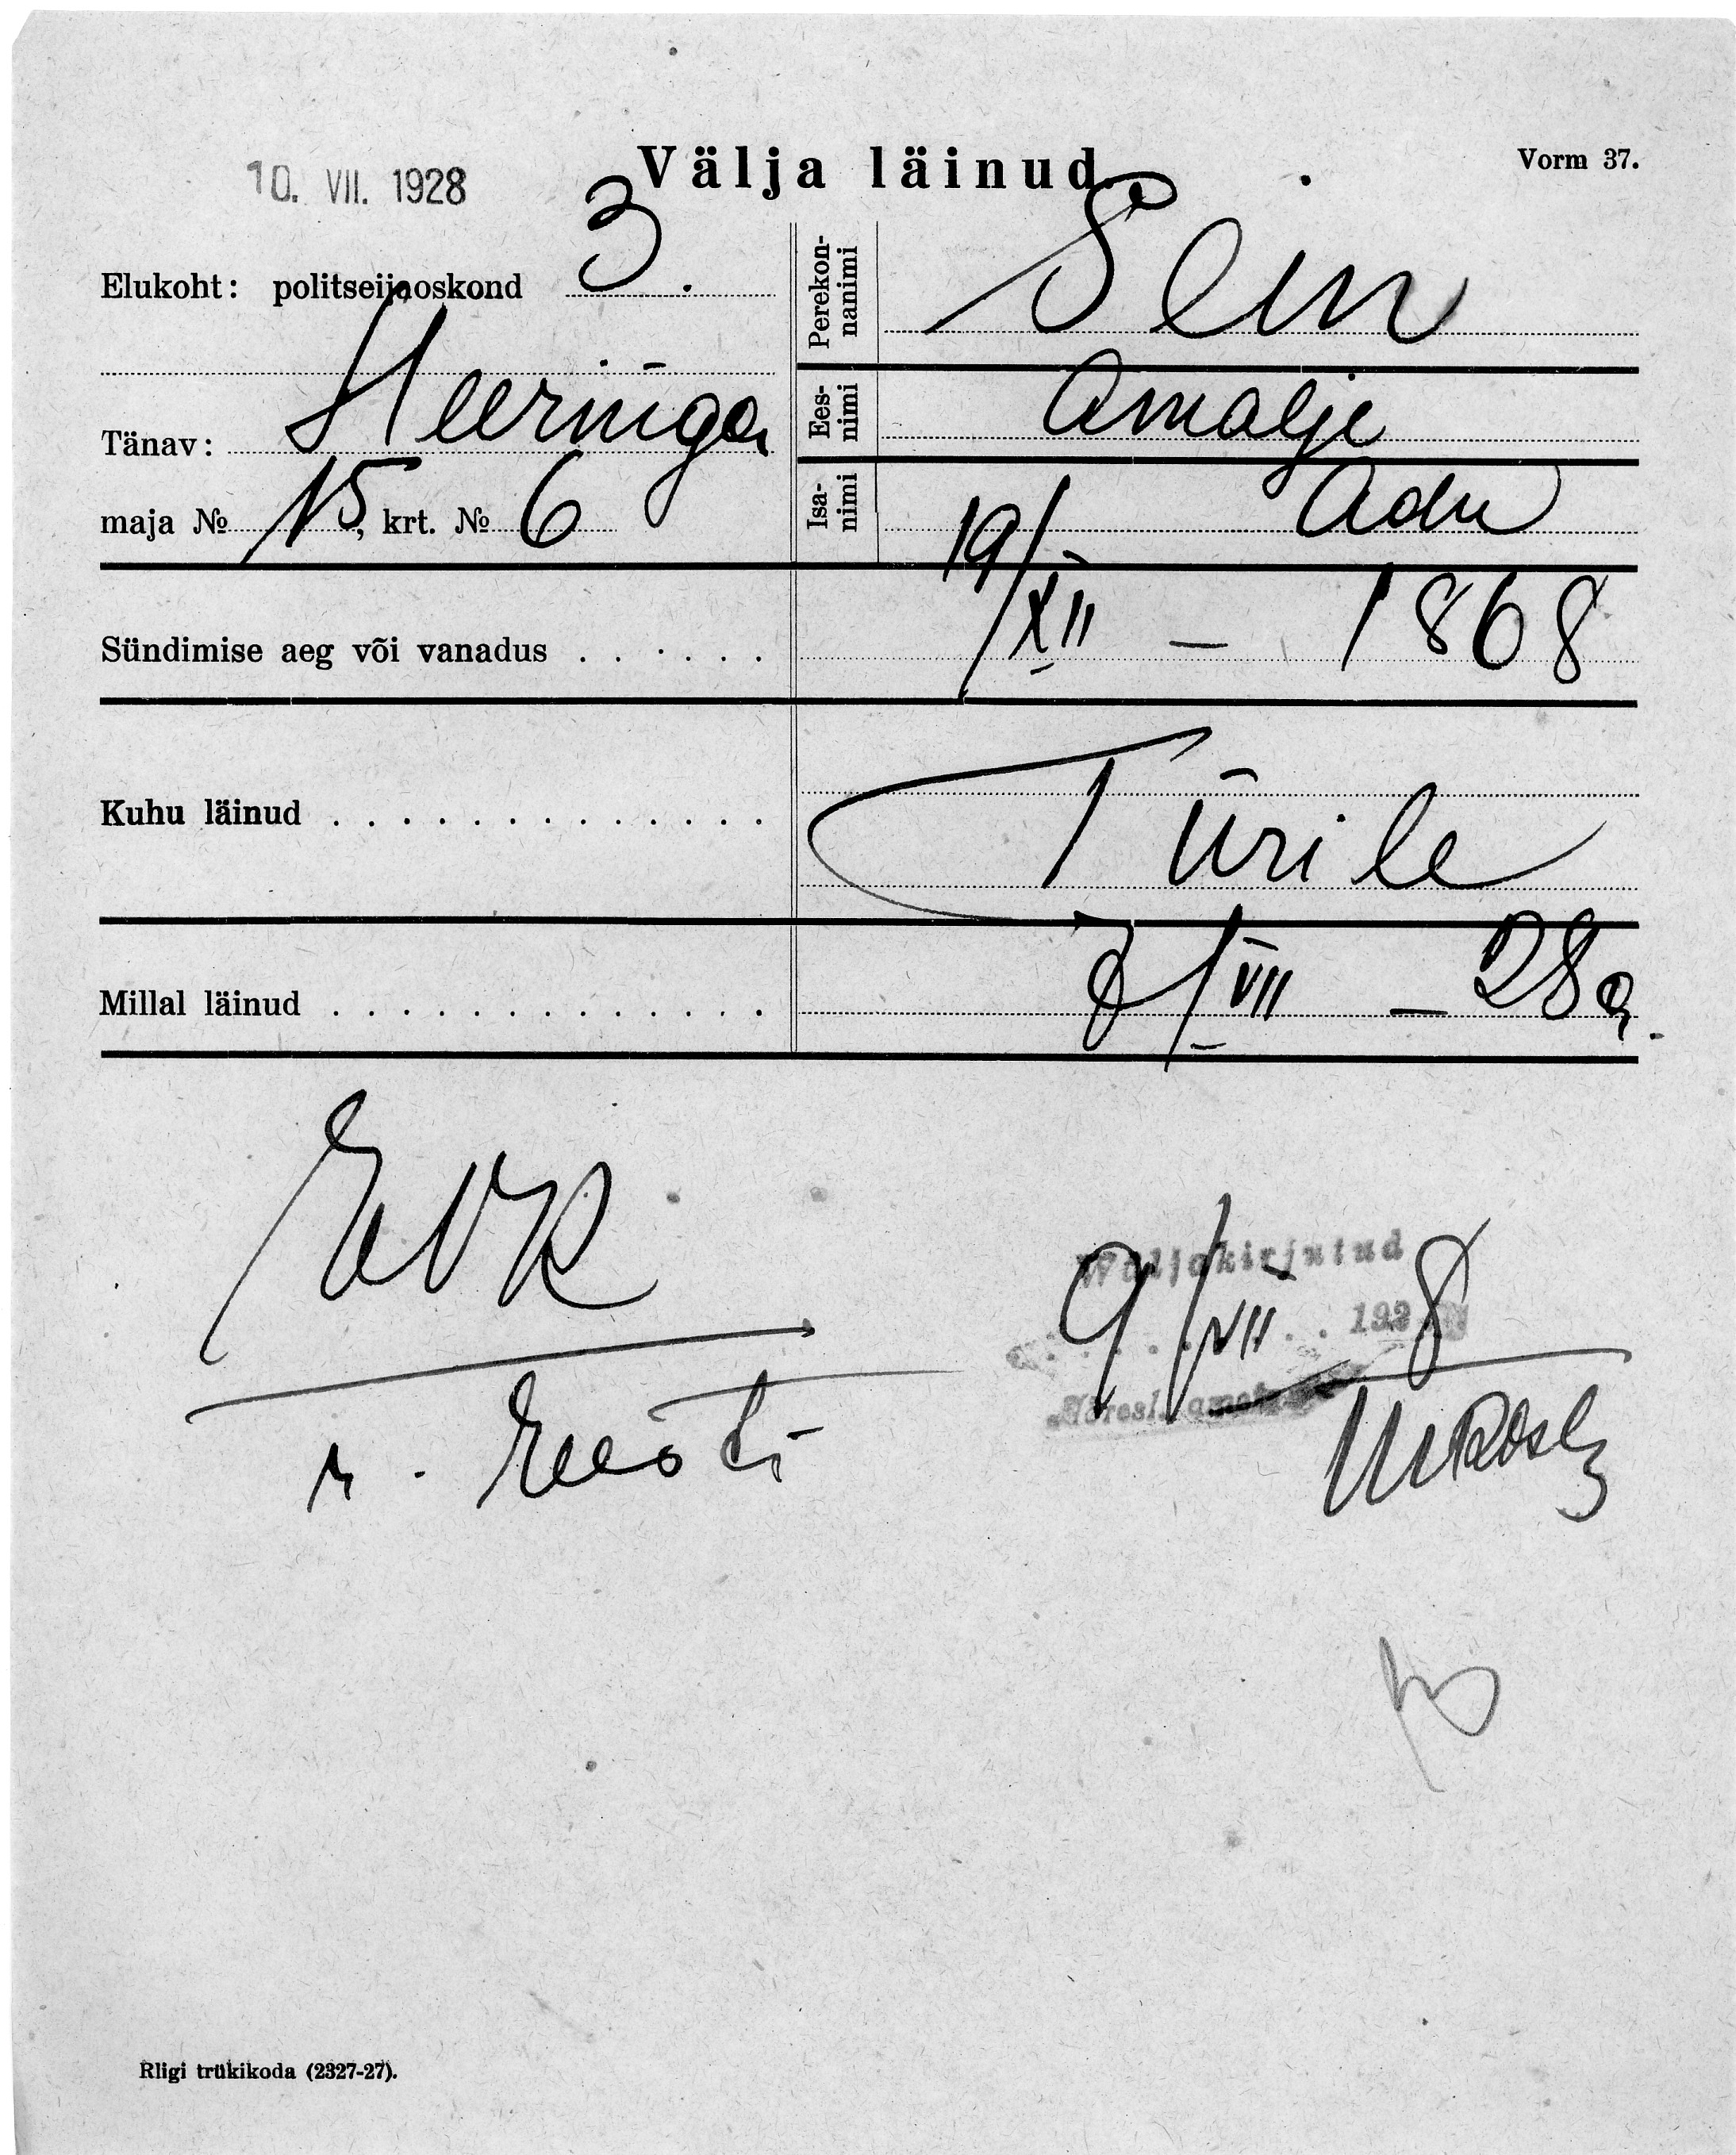 10. VII. 1928
Välja läinud.
Vorm 37.
Elukoht: politseijaoskond 3.
Tänav: Heeringa
maja № 15, krt. № 6
Perekon-
nanimi
Sein
Ees-
nimi
Amalje
Isa-
nimi
Adu
Sündimise aeg või vanadus . . . . . . 19/XII — 1868
Kuhu läinud . . . . . . . . . . . . . Türile
Millal läinud . . . . . . . . . . . . . 7/VII — 28 a.
EVK
n. Eesti
Wäljakirjutud
9/VII 1928
Rligi trükikoda (2327-27).